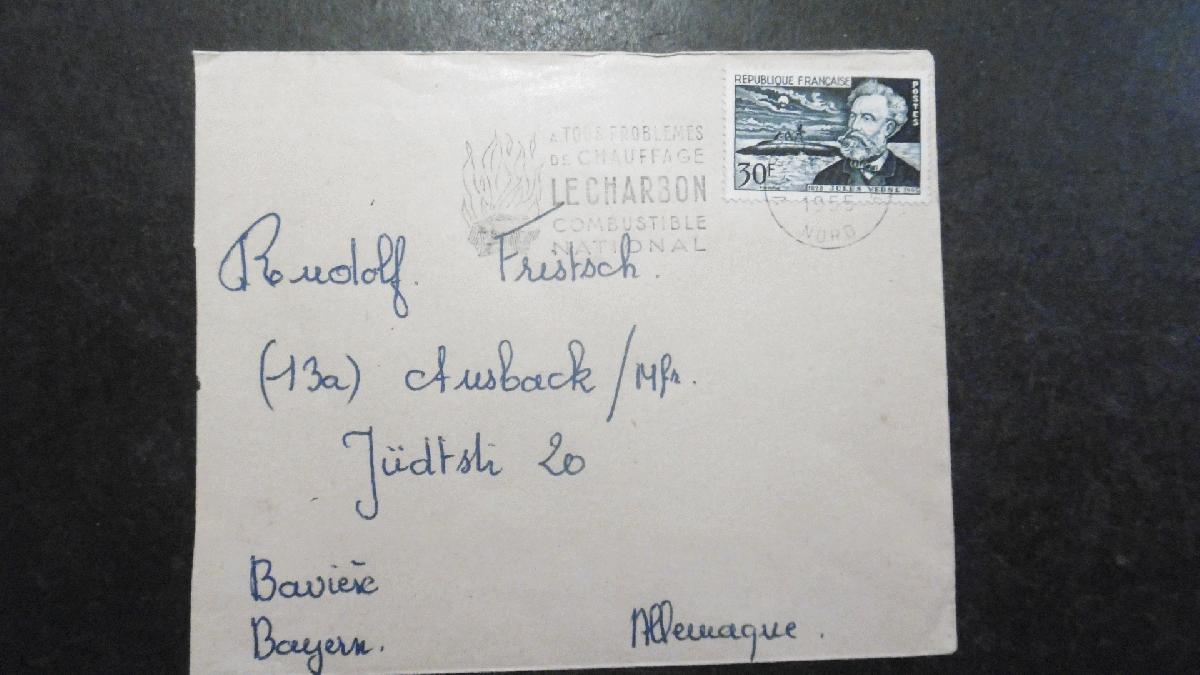 REPUBLIQUE FRANÇAISE
POSTES
30F
JULES VERNE
A TOUS PROBLEMES
DE CHAUFFAGE
LE CHARBON
COMBUSTIBLE
NATIONAL
1955
NORD
Rudolf. Fritsch.
(13a) Ausback / Mfr.
Jüdtstr 20
Bavière
Bayern.
Allemagne.